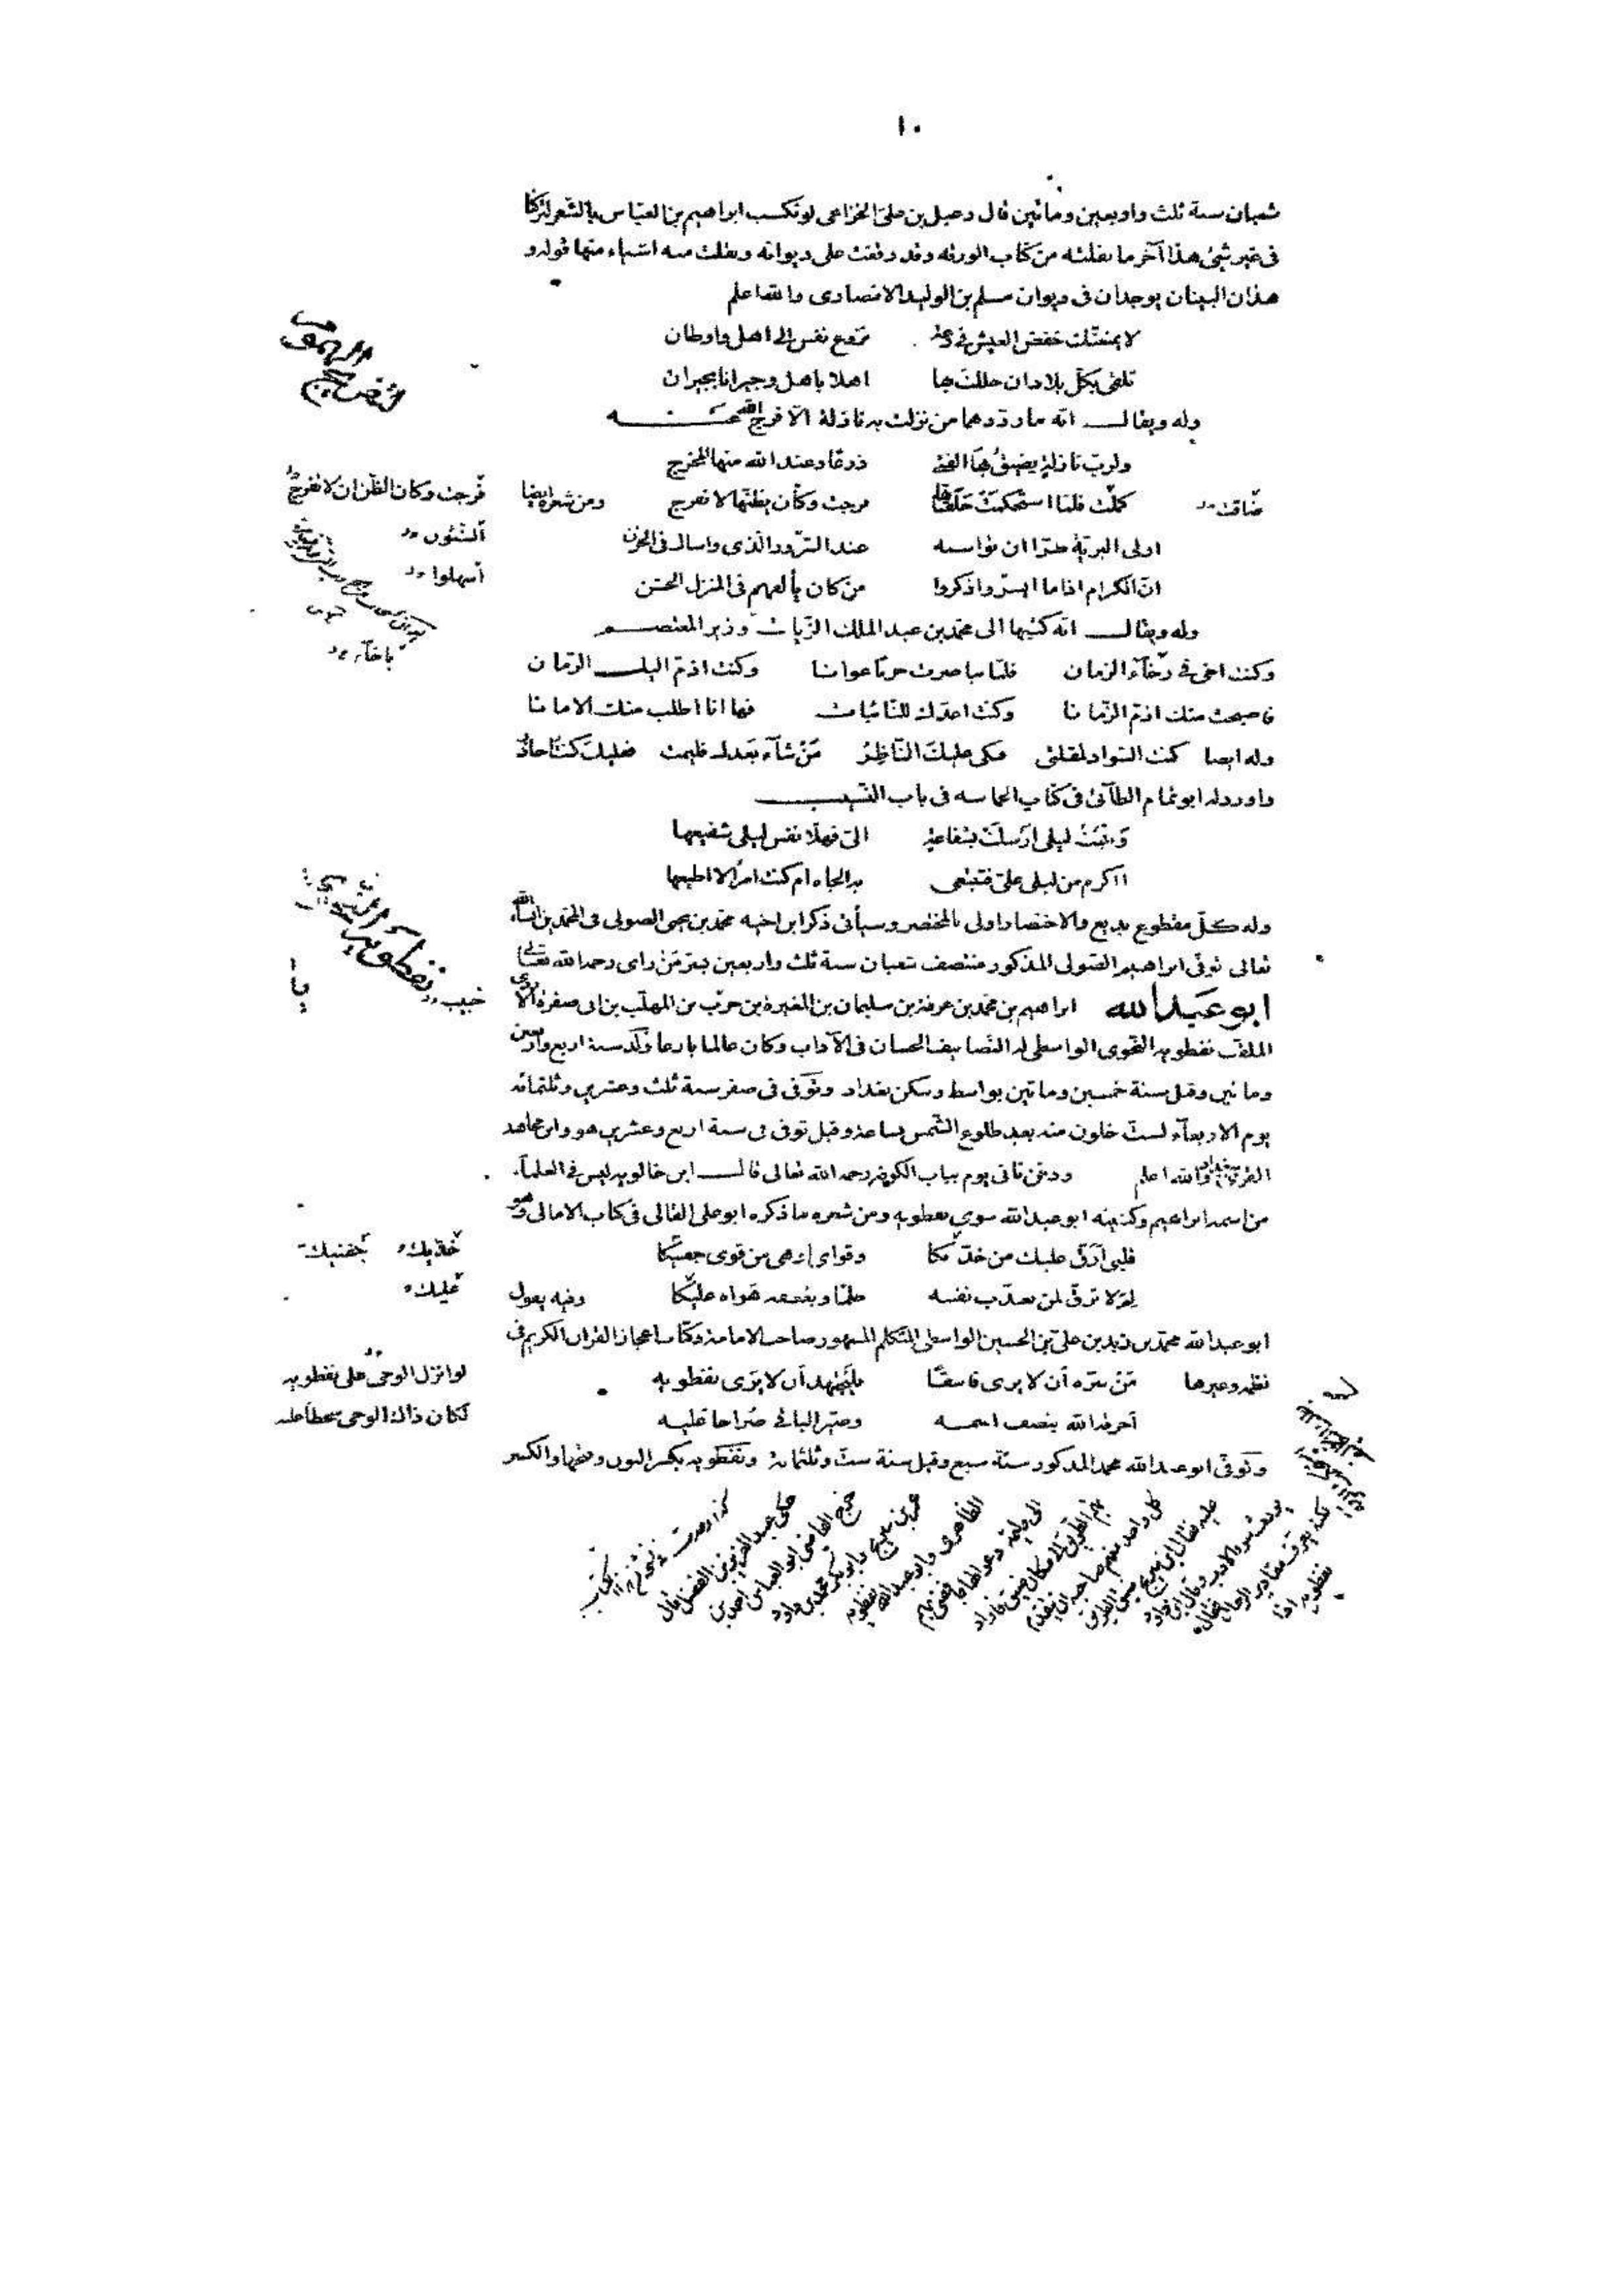 ١٠
شعبان سنة ثلث واربعين ومائتين قال دعبل بن على الخزاعى لو تكسب ابراهيم بن العباس بالشعر لتركنا
فى غير شئ هذا آخر ما نقلته من كتاب الورقه وقد وقفت على ديوانه ونقلت منه اشياء منها قوله و
هذان البيتان يوجدان فى ديوان مسلم بن الوليد الانصارى والله اعلم
لا يمنعنّك خفض العيش فى دعة نزوع نفس الى اهل واوطان
تلقى بكلّ بلاد ان حللت بها اهلا باهل وجيرانا بجيران
وله ويقال انّه ما ردّدهما من نزلت به نازلة الّا فرج الله عنه
ولربّ نازلة يضيق بها الفتى ذرعًا وعند الله منها المخرج
ضاقت
كملت فلمّا استحكمت حلقاتها فرجت وكان يظنّها لا تفرج ومن شعره ايضا
فرجت وكان الظنّ ان لا تفرج
اولى البريّة طرّا ان تواسيه عند السّرور الّذى واساك فى الحزن
انّ الكرام اذا ما ايسروا ذكروا من كان يألفهم فى المنزل الخشن
اسهلوا
وله ويقال انّه كتبها الى محمّد بن عبد الملك الزّيات وزير المعتصم
وكنت اخى فى رخآء الزمان فلمّا نبا صرت حربًا عوانا وكنت اذمّ اليك الزمان
باخآء
فاصبحت منك اذمّ الزّمانا وكنت اعدّك للنّائبات فها انا اطلب منك الامانا
وله ايضا كنت السّواد لمقلتى فبكى عليك النّاظر من شآء بعدك فليمت فعليك كنت احاذر
واورد له ابو تمام الطآئى فى كتاب الحماسه فى باب النسيب
ونبّئت ليلى ارسلت بشفاعة الىّ فهلّا نفس ليلى شفيعها
ااكرم من ليلى علىّ فتبتغى به الجاه ام كنت امرأ لا اطيعها
وله كلّ مقطوع بديع والاختصار اولى بالمختصر وسيأتى ذكر ابن اخيه محمّد بن يحيى الصولى فى المحمّدين ان شآء الله
تعالى توفّى ابراهيم الصّولى المذكور منتصف شعبان سنة ثلث واربعين بسرّ من راى رحمه الله تعالى
ابو عبد الله ابراهيم بن محمّد بن عرفة بن سليمان بن المغيرة بن حرب بن المهلّب بن ابى صفرة الازدى
حبيب
نفطويه
الملقّب نفطويه النحوى الواسطى له التصانيف الحسان فى الآداب وكان عالما بارعا ولد سنة اربع واربعين
ومائتين وقيل سنة خمسين ومائتين بواسط وسكن بغداد وتوفّى فى صفر سنة ثلث وعشرين وثلثمائه
يوم الاربعآء لستّ خلون منه بعد طلوع الشّمس بساعة وقيل توفّى فى سنة اربع وعشرين هو وابن مجاهد
المقرئ ببغداد والله اعلم ودفن ثانى يوم بباب الكوفة رحمه الله تعالى قال ابن خالويه ليس فى العلمآء
من اسمه ابراهيم وكنيته ابو عبد الله سوى نفطويه ومن شعره ما ذكره ابو على القالى فى كتاب الامالى وهو
قلبى ارقّ عليك من خدّيكا وقواى اوهى من قوى جفنيكا
خدّيك جفنيك
لم لا ترقّ لمن يعذّب نفسه ظلمًا ويعطفه هواه عليكا وفيه يقول
عليك
ابو عبد الله محمّد بن زيد بن على بن الحسين الواسطى المتكلم المشهور صاحب الامامة وكتاب اعجاز القران الكريم فى
نظمه وغيرها من سرّه أن لا يرى فاسقًا فليجتهد أن لا يرى نفطويه
لو انزل الوحى على نفطويه
أحرقه الله بنصف اسمه وصيّر الباقى صراخًا عليه
لكان ذاك الوحى سخطًا عليه
وتوفّى ابو عبد الله محمد المذكور سنة سبع وقيل سنة ستّ وثلثمائة ونفطويه بكسر النون وفتحها والكسر
حكى عبد العزيز بن الفضل قال
خرج القاضى ابو العباس احمد بن
عمر بن سريج وابو بكر محمّد بن داود
الظاهرى وابو عبد الله نفطويه
الى وليمة دعوا لها فافضى بهم
الطريق الى مكان ضيّق فاراد
كلّ واحد منهم صاحبه ان يتقدّم
عليه فقال ابن سريج ضيق الطريق
يورث سوء الادب وقال ابن داود
لكنه يعرف مقادير الرجال فقال
نفطويه اذا